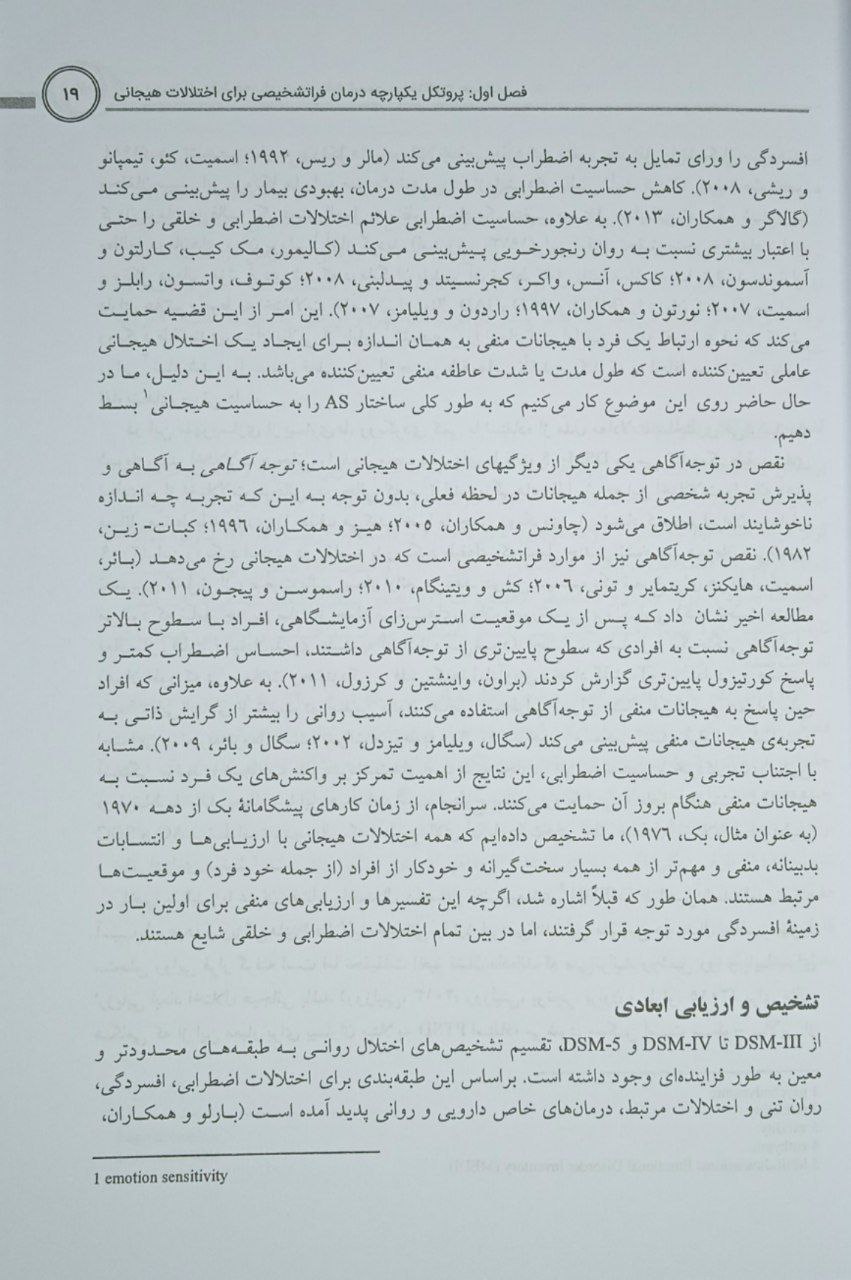 فصل اول: پروتکل یکپارچه درمان فراتشخیصی برای اختلالات هیجانی
۱۹
افسردگی را ورای تمایل به تجربه اضطراب پیش‌بینی می‌کند (مالر و ریس، ۱۹۹۲؛ اسمیت، کئو، تیمپانو
و ریشی، ۲۰۰۸). کاهش حساسیت اضطرابی در طول مدت درمان، بهبودی بیمار را پیش‌بینی می‌کند
(گالاگر و همکاران، ۲۰۱۳). به علاوه، حساسیت اضطرابی علائم اختلالات اضطرابی و خلقی را حتی
با اعتبار بیشتری نسبت به روان رنجورخویی پیش‌بینی می‌کند (کالیمور، مک کیب، کارلتون و
آسموندسون، ۲۰۰۸؛ کاکس، آنس، واکر، کجرنسیتد و پیدلبنی، ۲۰۰۸؛ کوتوف، واتسون، رابلز و
اسمیت، ۲۰۰۷؛ نورتون و همکاران، ۱۹۹۷؛ راردون و ویلیامز، ۲۰۰۷). این امر از این قضیه حمایت
می‌کند که نحوه ارتباط یک فرد با هیجانات منفی به همان اندازه برای ایجاد یک اختلال هیجانی
عاملی تعیین‌کننده است که طول مدت یا شدت عاطفه منفی تعیین‌کننده می‌باشد. به این دلیل، ما در
حال حاضر روی این موضوع کار می‌کنیم که به طور کلی ساختار AS را به حساسیت هیجانی۱ بسط
دهیم.
نقص در توجه‌آگاهی یکی دیگر از ویژگیهای اختلالات هیجانی است؛ توجه آگاهی به آگاهی و
پذیرش تجربه شخصی از جمله هیجانات در لحظه فعلی، بدون توجه به این که تجربه چه اندازه
ناخوشایند است، اطلاق می‌شود (چاونس و همکاران، ۲۰۰۵؛ هیز و همکاران، ۱۹۹۶؛ کبات- زین،
۱۹۸۲). نقص توجه‌آگاهی نیز از موارد فراتشخیصی است که در اختلالات هیجانی رخ می‌دهد (بائر،
اسمیت، هایکنز، کریتمایر و تونی، ۲۰۰۶؛ کش و ویتینگام، ۲۰۱۰؛ راسموسن و پیجون، ۲۰۱۱). یک
مطالعه اخیر نشان داد که پس از یک موقعیت استرس‌زای آزمایشگاهی، افراد با سطوح بالاتر
توجه‌آگاهی نسبت به افرادی که سطوح پایین‌تری از توجه‌آگاهی داشتند، احساس اضطراب کمتر و
پاسخ کورتیزول پایین‌تری گزارش کردند (براون، واینشتین و کرزول، ۲۰۱۱). به علاوه، میزانی که افراد
حین پاسخ به هیجانات منفی از توجه‌آگاهی استفاده می‌کنند، آسیب روانی را بیشتر از گرایش ذاتی به
تجربه‌ی هیجانات منفی پیش‌بینی می‌کند (سگال، ویلیامز و تیزدل، ۲۰۰۲؛ سگال و بائر، ۲۰۰۹). مشابه
با اجتناب تجربی و حساسیت اضطرابی، این نتایج از اهمیت تمرکز بر واکنش‌های یک فرد نسبت به
هیجانات منفی هنگام بروز آن حمایت می‌کنند. سرانجام، از زمان کارهای پیشگامانهٔ بک از دهه ۱۹۷۰
(به عنوان مثال، بک، ۱۹۷۶)، ما تشخیص داده‌ایم که همه اختلالات هیجانی با ارزیابی‌ها و انتسابات
بدبینانه، منفی و مهم‌تر از همه بسیار سخت‌گیرانه و خودکار از افراد (از جمله خود فرد) و موقعیت‌ها
مرتبط هستند. همان طور که قبلاً اشاره شد، اگرچه این تفسیرها و ارزیابی‌های منفی برای اولین بار در
زمینهٔ افسردگی مورد توجه قرار گرفتند، اما در بین تمام اختلالات اضطرابی و خلقی شایع هستند.
تشخیص و ارزیابی ابعادی
از DSM-III تا DSM-IV و DSM-5، تقسیم تشخیص‌های اختلال روانی به طبقه‌های محدودتر و
معین به طور فزاینده‌ای وجود داشته است. براساس این طبقه‌بندی برای اختلالات اضطرابی، افسردگی،
روان تنی و اختلالات مرتبط، درمان‌های خاص دارویی و روانی پدید آمده است (بارلو و همکاران،
1 emotion sensitivity